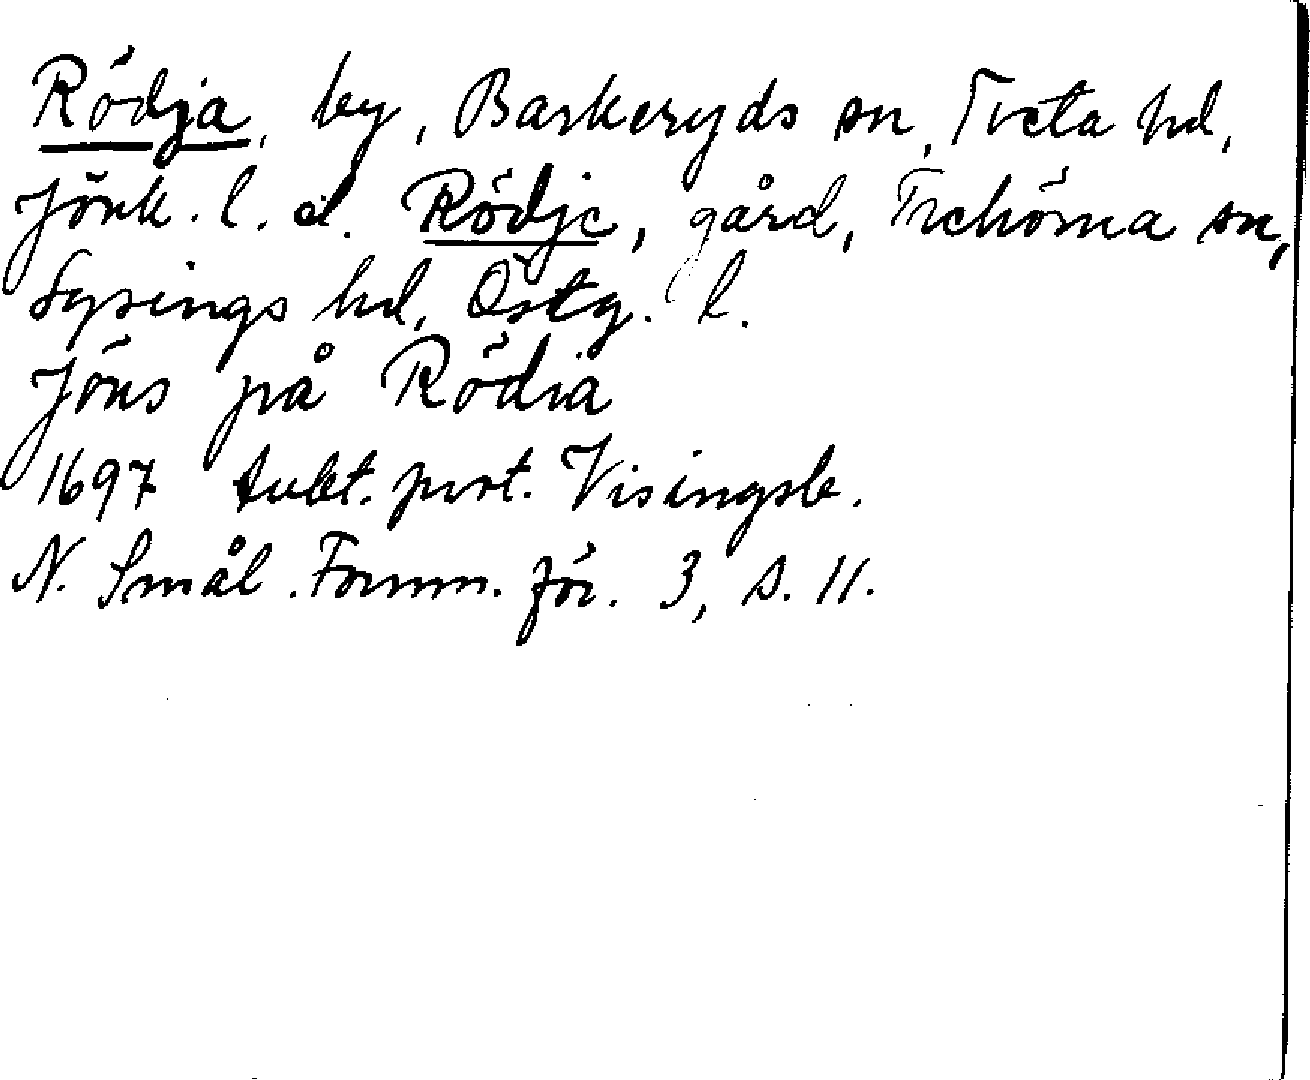 Rödja, by, Barkeryds sn, Tveta hd,
Jönk. l. el. Rödje, gård, Trehörna sn,
Lysings hd, Östg. l.
Jöns på Rödia
1697 aukt. prot. Visingsb.
N. Smål. Fornm. för. 3, s. 11.